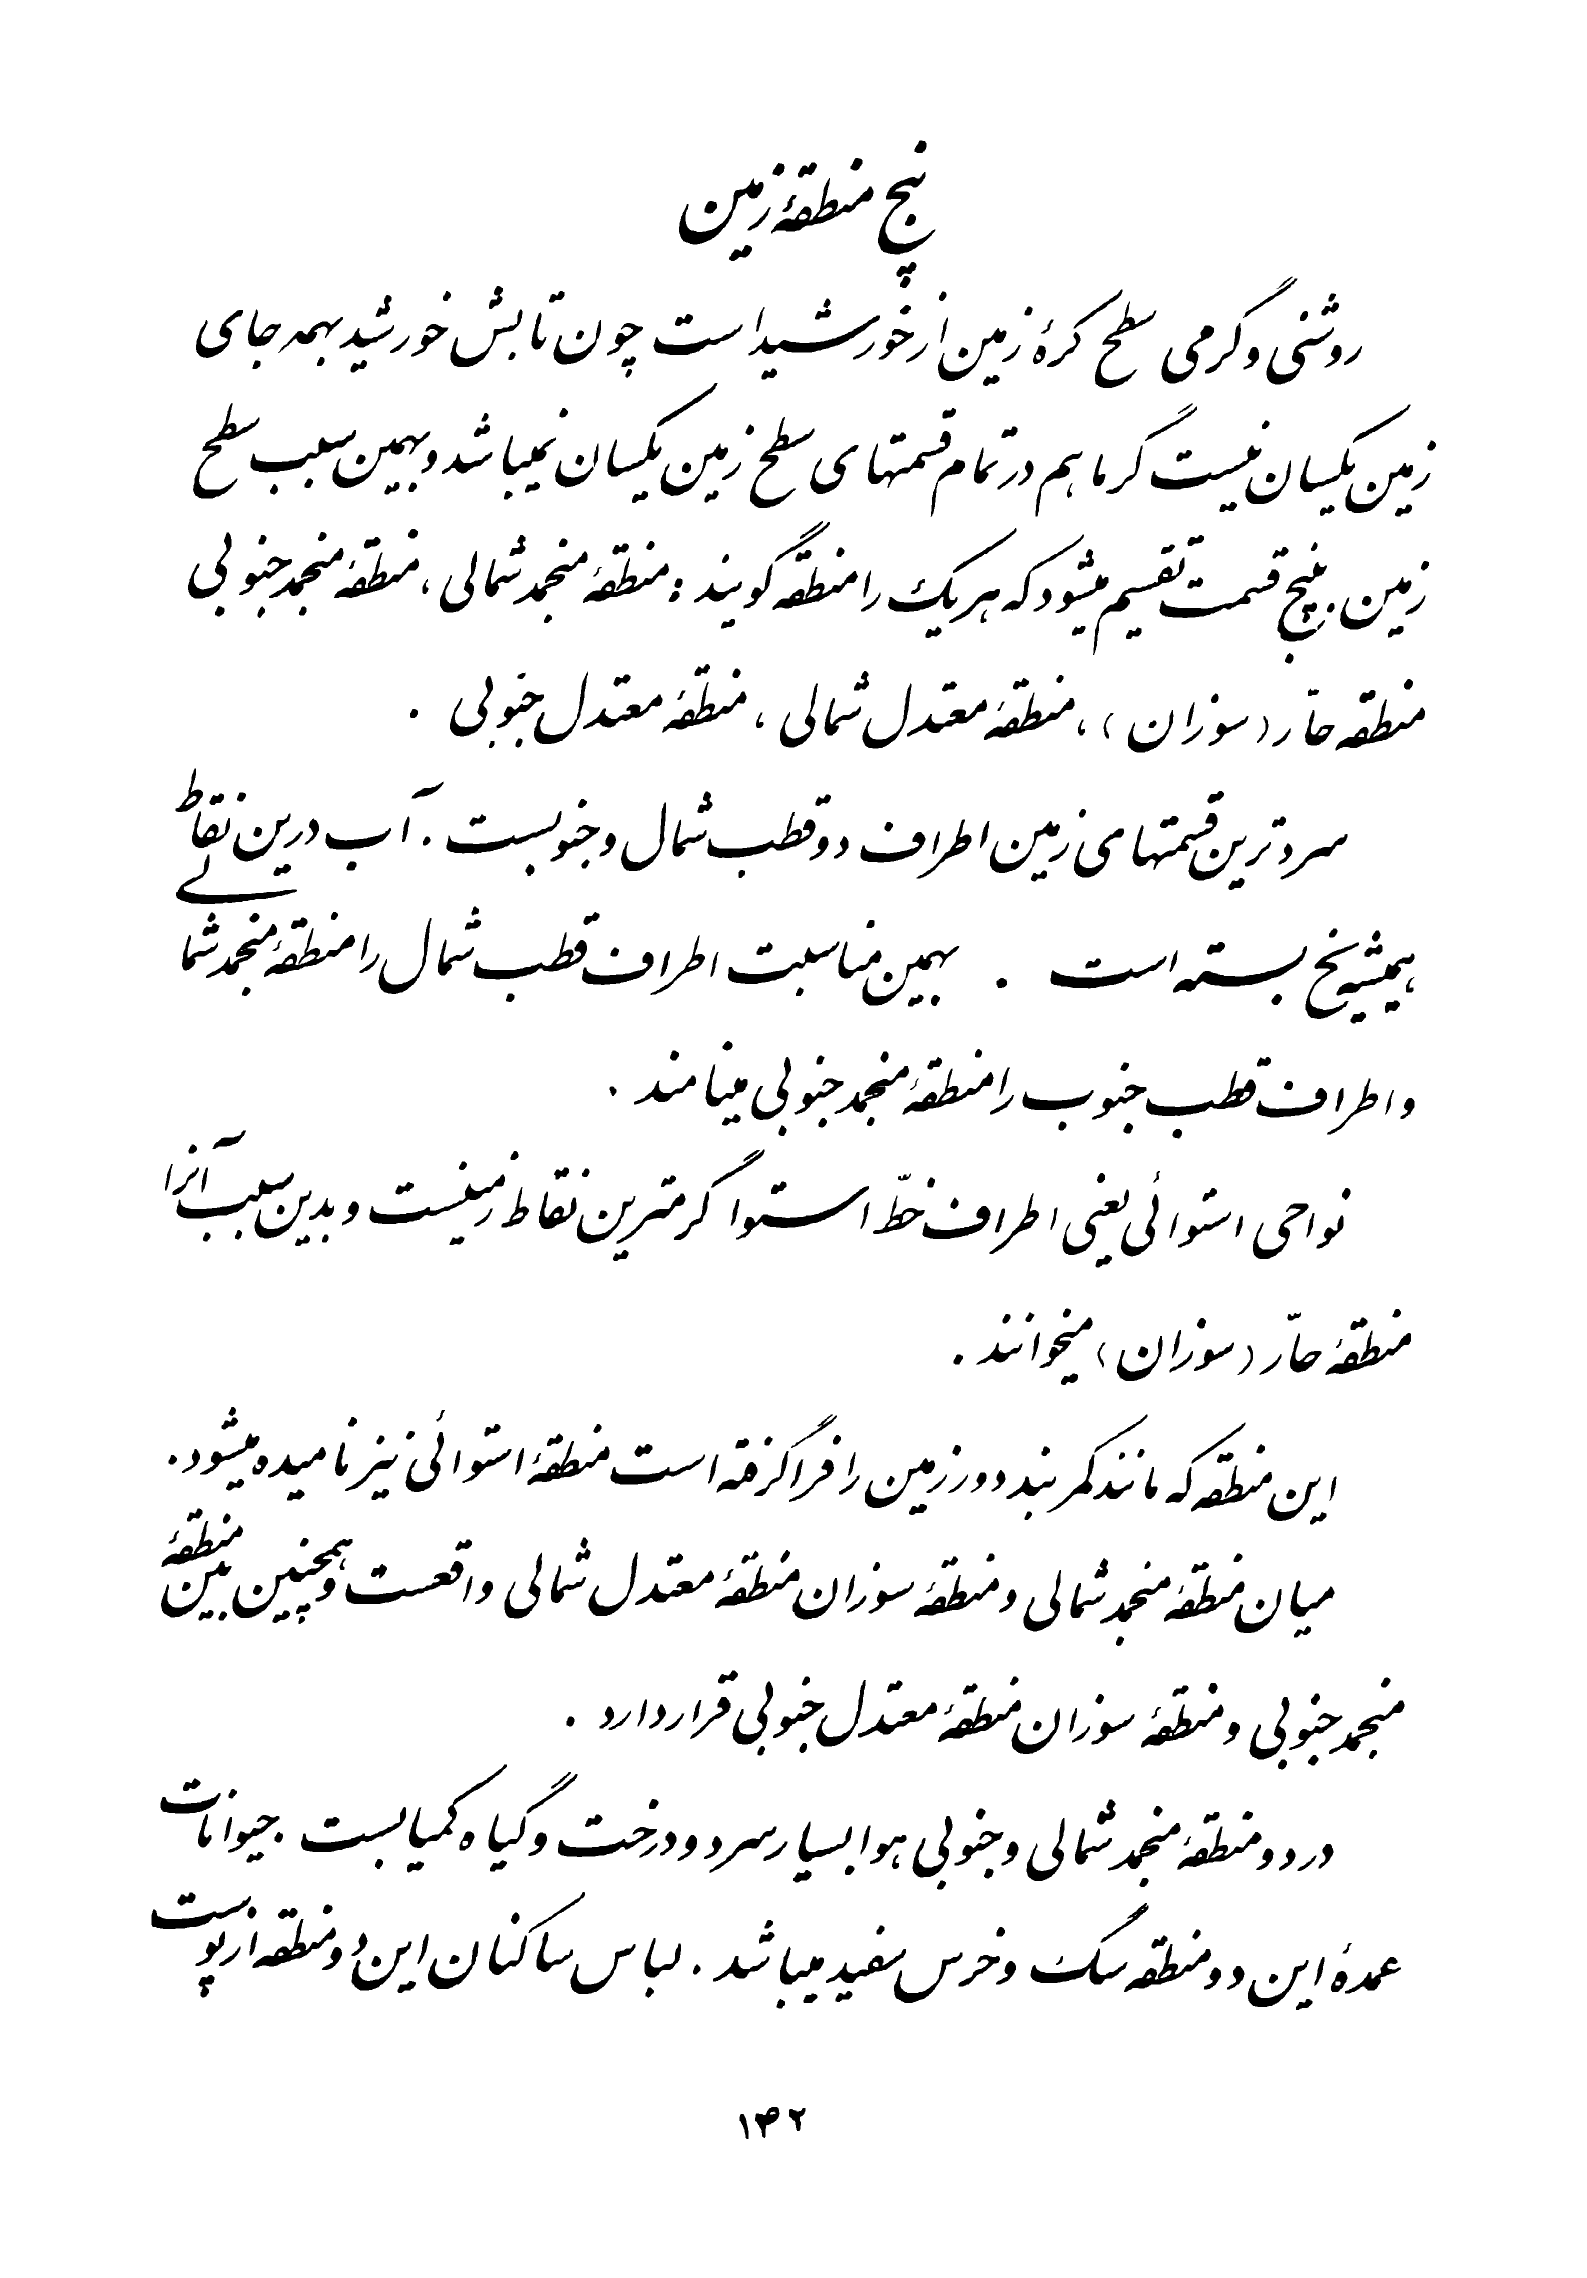 پنج منطقهٔ زمین
روشنی و گرمی سطح کرهٔ زمین از خورشید است چون تابش خورشید بهمه جای
زمین یکسان نیست گرما هم در تمام قسمتهای سطح زمین یکسان نمیباشد و بهمین سبب سطح
زمین به پنج قسمت تقسیم میشود که هر یک را منطقه گویند : منطقهٔ منجمد شمالی ، منطقهٔ منجمد جنوبی
منطقه حارّ ( سوزان ) ، منطقهٔ معتدل شمالی ، منطقهٔ معتدل جنوبی .
سردترین قسمتهای زمین اطراف دو قطب شمال و جنوبست . آب درین نقاط
همیشه یخ بسته است . بهمین مناسبت اطراف قطب شمال را منطقهٔ منجمد شمالی
و اطراف قطب جنوب را منطقهٔ منجمد جنوبی مینامند .
نواحی استوائی یعنی اطراف خطّ استوا گرمترین نقاط زمینست و بدین سبب آنرا
منطقهٔ حارّ ( سوزان ) میخوانند .
این منطقه که مانند کمربند دور زمین را فرا گرفته است منطقهٔ استوائی نیز نامیده میشود .
میان منطقهٔ منجمد شمالی و منطقهٔ سوزان منطقهٔ معتدل شمالی واقعست و همچنین بین منطقهٔ
منجمد جنوبی و منطقهٔ سوزان منطقهٔ معتدل جنوبی قرار دارد .
در دو منطقهٔ منجمد شمالی و جنوبی هوا بسیار سرد و درخت و گیاه کمیابست . حیوانات
عمدهٔ این دو منطقه سگ و خرس سفید میباشد . لباس ساکنان این دو منطقه از پوست
۱۴۲